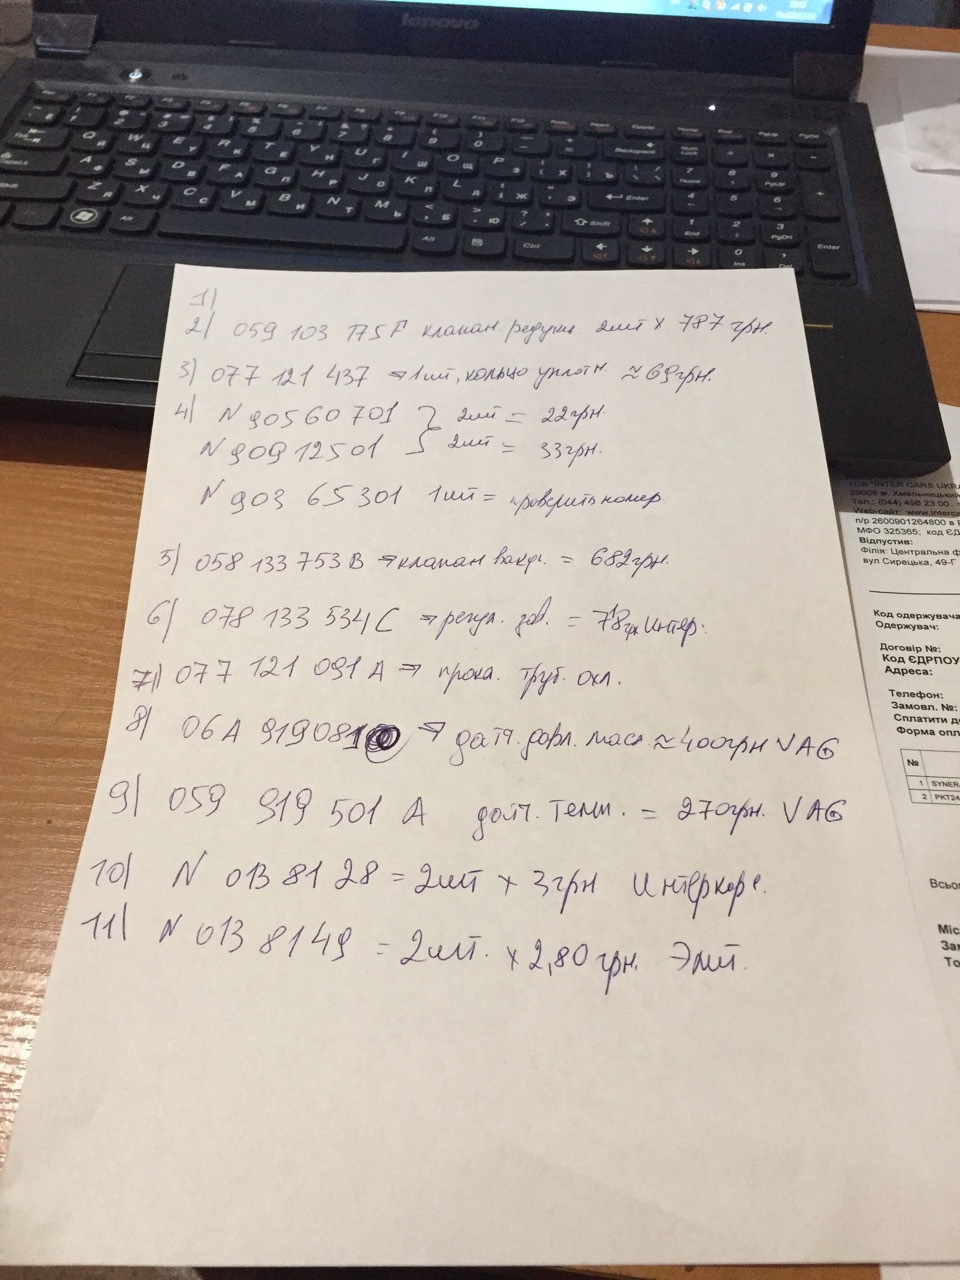 lenovo
1)
2) 059 103 175 F клапан. редукц 2шт x 787 грн.
3) 077 121 437 ⇒ 1шт, кольцо уплотн. ≈ 69грн.
4) N 905 60 701 } 2шт = 22грн.
N 909 12501 2шт = 33грн.
N 903 65301 1шт = проверить номер
5) 058 133 753 B ⇒ клапан ваку. = 682грн.
6) 078 133 534 C ⇒ регул. = 78 Интер.
7) 077 121 091 A ⇒ прокл. труб. охл.
8) 06A 919081 ⇒ датч. давл. масл ≈ 400грн VAG
9) 059 919 501 A датч. темп. = 270грн. VAG
10) N 013 8128 = 2шт x 3грн Интеркарс.
11) N 013 8149 = 2шт. x 2,80 грн. Элит.
ТОВ "INTER CARS UKRA
29009 м. Хмельницький
Тел.: (044) 496 23 00
Web-сайт: www.interca
п/р 2600901264800 в
МФО 325365; код ЄД
Відпустив:
Філія: Центральна ф
вул Сирецька, 49-Г
Код одержувача
Одержувач:
Договір №:
Код ЄДРПОУ
Адреса:
Телефон:
Замовл. №:
Сплатити до
Форма опл
№
1 SYNER
2 PKT24
Всьо
Міс
Зам
То